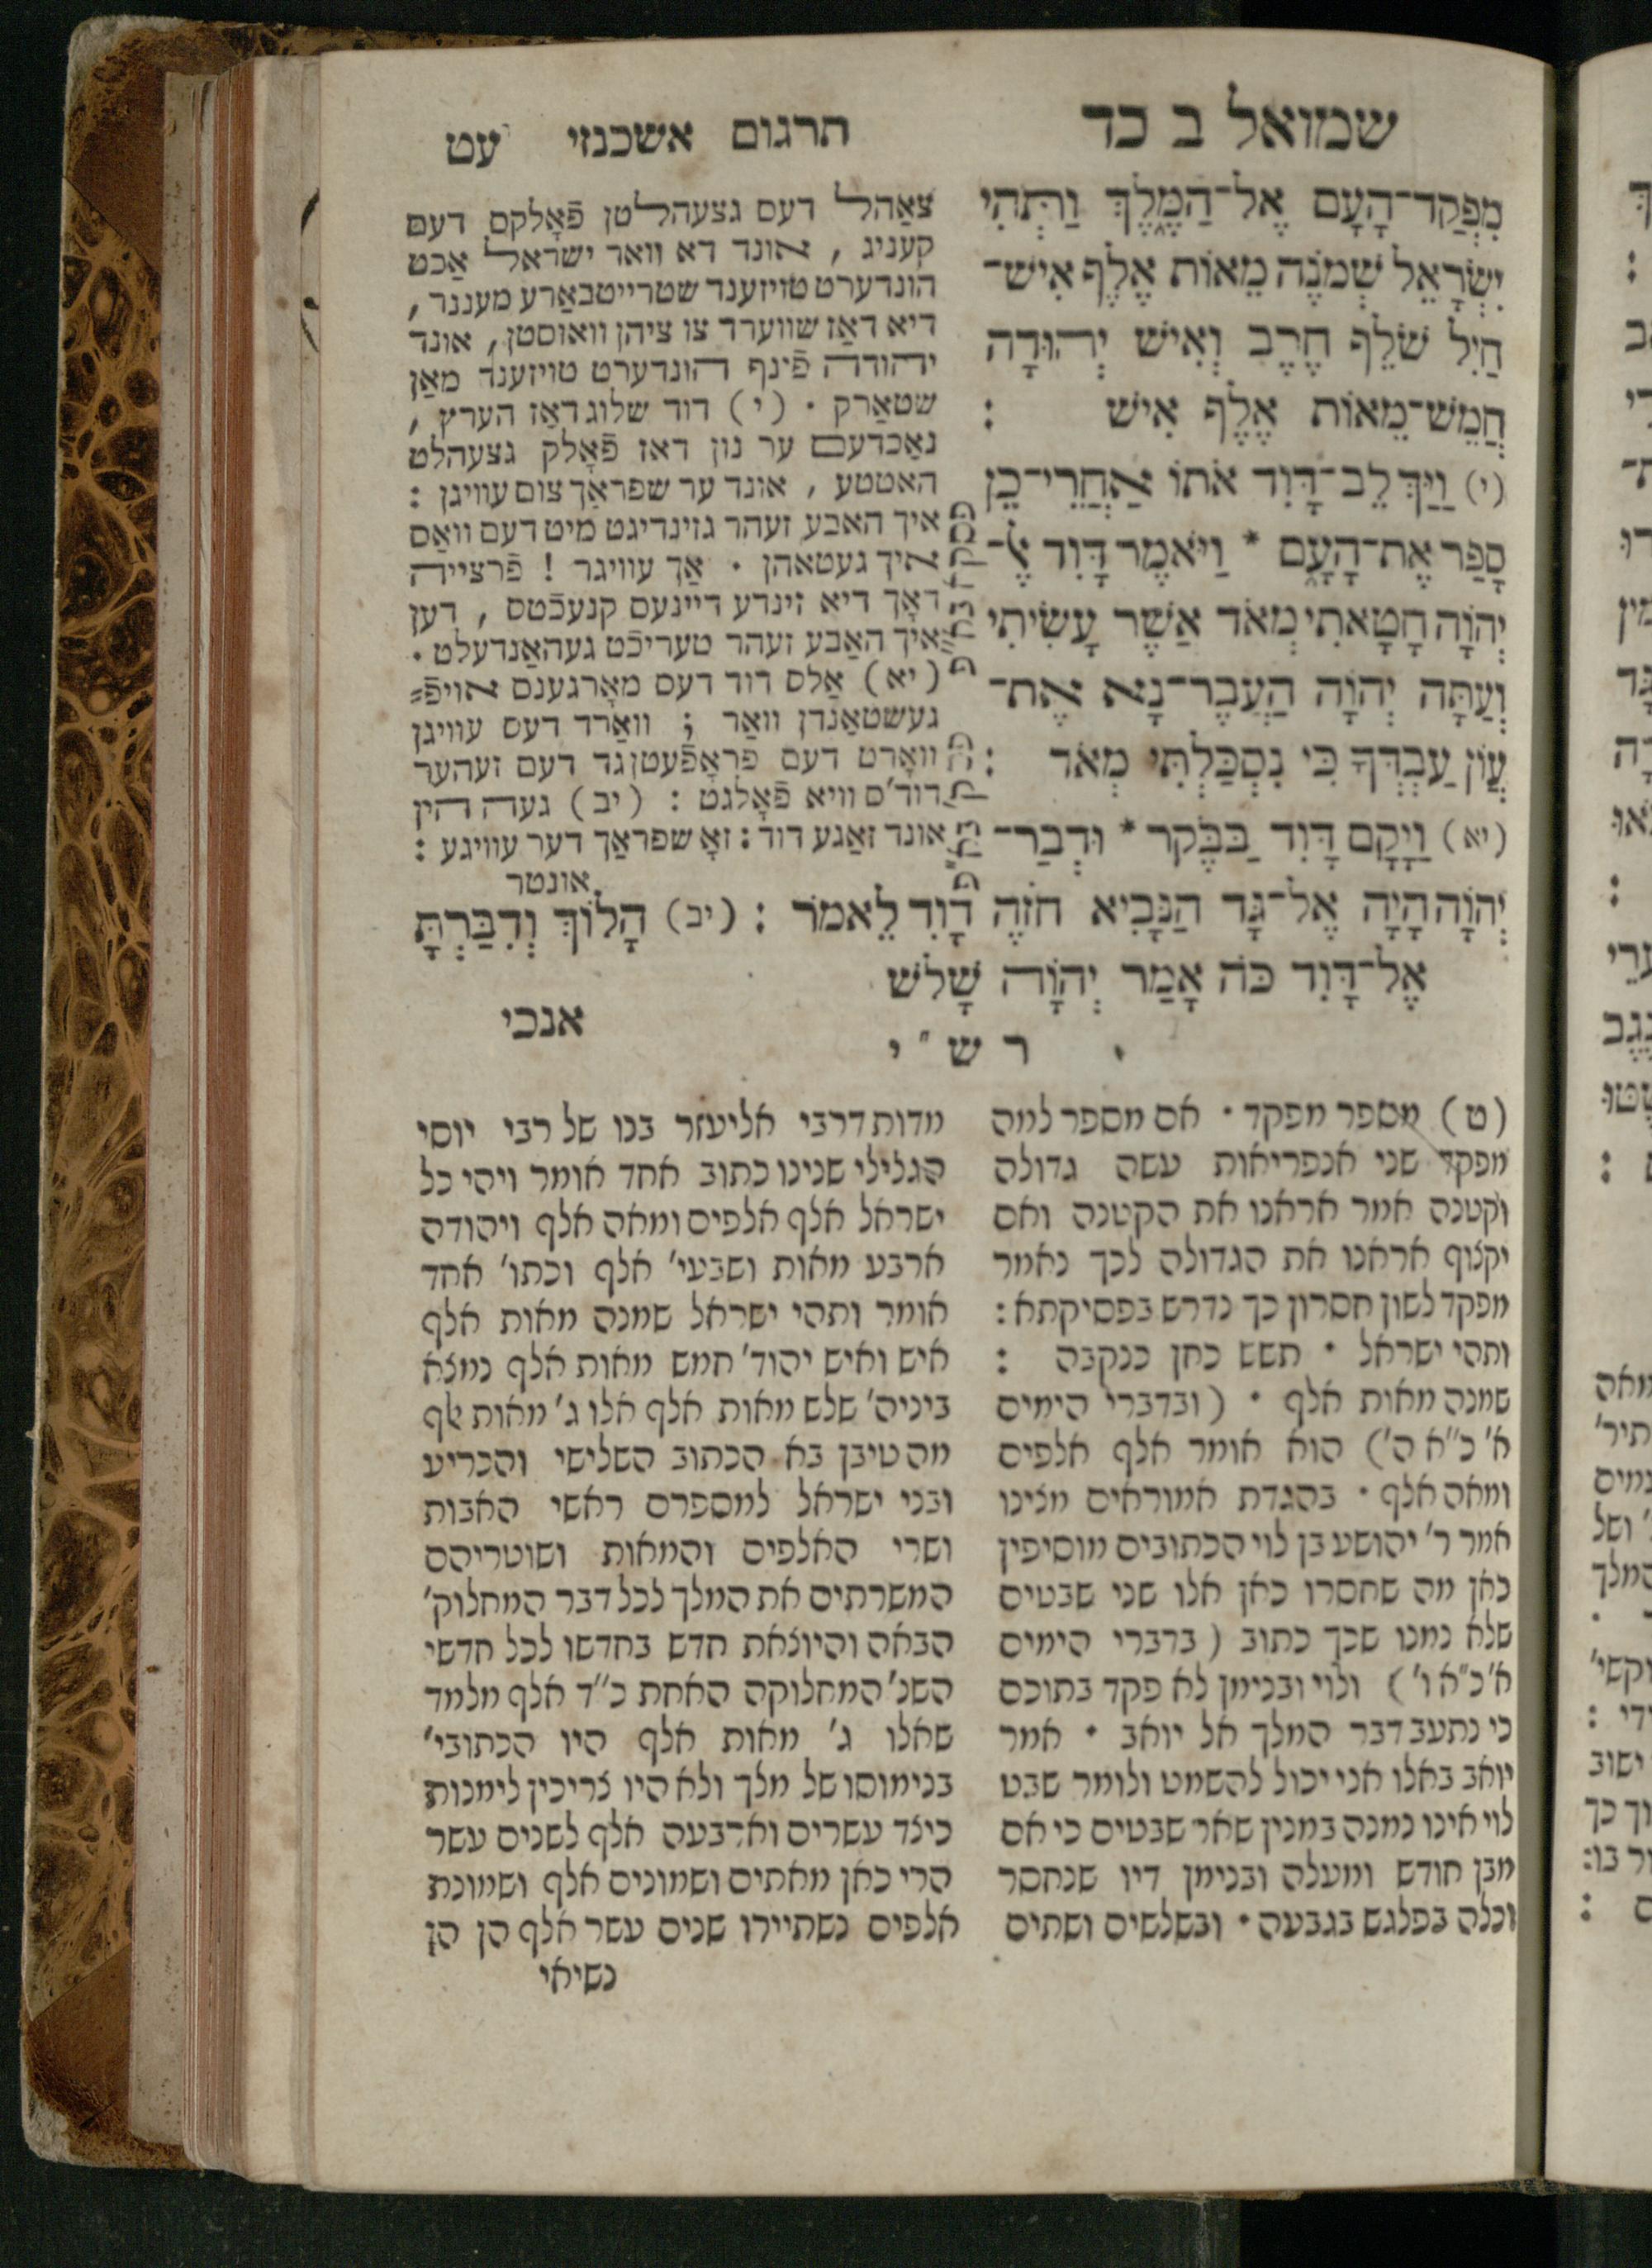 שמואל ב כד
תרגום אשכנזי עט
מִפְקַד־הָעָם אֶל־הַמֶּלֶךְ וַתְּהִי
יִשְׂרָאֵל שְׁמֹנֶה מֵאוֹת אֶלֶף אִישׁ־
חַיִל שֹׁלֵף חֶרֶב וְאִישׁ יְהוּדָה
חֲמֵשׁ־מֵאוֹת אֶלֶף אִישׁ :
(י) וַיַּךְ לֵב־דָּוִד אֹתוֹ אַחֲרֵי־כֵן
סָפַר אֶת־הָעָם * וַיֹּאמֶר דָּוִד אֶל־
יְהוָֹה חָטָאתִי מְאֹד אֲשֶׁר עָשִׂיתִי
וְעַתָּה יְהוָֹה הַעֲבֶר־נָא אֶת־
עֲוֹן עַבְדְּךָ כִּי נִסְכַּלְתִּי מְאֹד :
(יא) וַיָּקָם דָּוִד בַּבֹּקֶר * וּדְבַר־
יְהוָֹה הָיָה אֶל־גָּד הַנָּבִיא חֹזֵה דָוִד לֵאמֹר : (יב) הָלוֹךְ וְדִבַּרְתָּ
אֶל־דָּוִד כֹּה אָמַר יְהוָֹה שָׁלֹשׁ
אנכי
צאַהל דעם גצעהלטן פֿאָלקס דעם
קעניג , אונד דא וואר ישראל אַכט
הונדערט טויזענד שטרייטבאַרע מעננר ,
דיא דאַז שווערד צו ציהן וואוסטן , אונד
יהודה פֿינף הונדערט טויזענד מאַן
שטאַרק . (י) דוד שלוג דאַז הערץ ,
נאַכדעם ער נון דאז פֿאָלק גצעהלט
האטטע , אונד ער שפראַך צום עוויגן :
איך האבע זעהר גזינדיגט מיט דעם וואַס
איך געטאהן . אַך עוויגר ! פֿרצייה
דאָך דיא זינדע דיינעס קנעכֿטס , דען
איך האַבע זעהר טעריכֿט געהאַנדעלט .
(יא) אַלס דוד דעס מאָרגענס אויפֿ=
געשטאַנדן וואַר ; וואַרד דעס עוויגן
וואָרט דעם פראָפֿעטן גד דעם זעהער
דוד'ס וויא פֿאָלגט : (יב) געה הין
אונד זאַגע דוד : זאָ שפראַך דער עוויגע :
אונטר
רש״י
(ט) מספר מפקד . אם מספר למה
מפקד שני אנפריאות עשה גדולה
וקטנה אמר אראנו את הקטנה ואם
יקצוף אראנו את הגדולה לכך נאמר
מפקד לשון חסרון כך נדרש בפסיקתא :
ותהי ישראל . תשש כחן כנקבה :
שמנה מאות אלף . (ובדברי הימים
א' כ"א ה') הוא אומר אלף אלפים
ומאה אלף . בהגדת אמוראים מצינו
אמר ר' יהושע בן לוי הכתובים מוסיפין
כאן מה שחסרו כאן אלו שני שבטים
שלא נמנו שכך כתוב (בדברי הימים
א' כ"א ו') ולוי ובנימן לא פקד בתוכם
כי נתעב דבר המלך אל יואב . אמר
יואב באלו אני יכול להשמט ולומר שבט
לוי אינו נמנה במנין שאר שבטים כי אם
מבן חודש ומעלה ובנימן דיו שנחסר
וכלה בפלגש בגבעה . ובשלשים ושתים
מדות דרבי אליעזר בנו של רבי יוסי
הגלילי שנינו כתוב אחד אומר ויהי כל
ישראל אלף אלפים ומאה אלף ויהודה
ארבע מאות ושבעי' אלף וכתו' אחד
אומר ותהי ישראל שמנה מאות אלף
איש ואיש יהוד' חמש מאות אלף נמצא
ביניה' שלש מאות אלף אלו ג' מאות אלף
מה טיבן בא הכתוב השלישי והכריע
ובני ישראל למספרם ראשי האבות
ושרי האלפים והמאות ושוטריהם
המשרתים את המלך לכל דבר המחלוק'
הבאה והיוצאת חדש בחדשו לכל חדשי
השנ' המחלוקה האחת כ"ד אלף מלמד
שאלו ג' מאות אלף היו הכתובי'
בנימוסו של מלך ולא היו צריכין לימנות
כיצד עשרים וארבעה אלף לשנים עשר
הרי כאן מאתים ושמונים אלף ושמונת
אלפים נשתיירו שנים עשר אלף הן הן
נשיאי